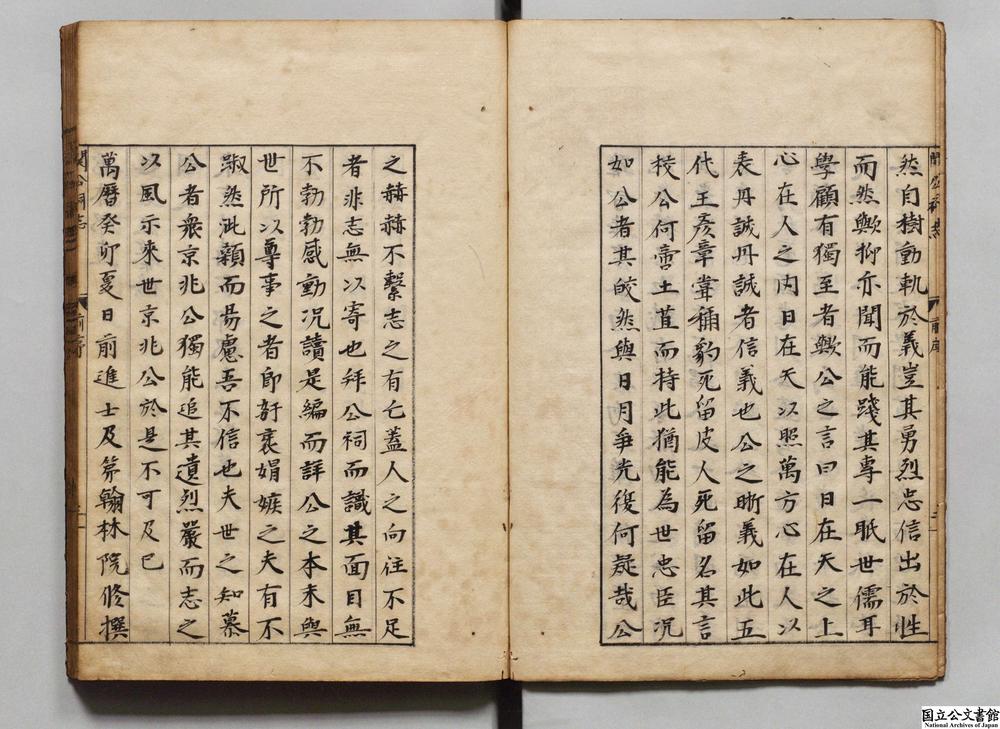 然自樹動軌於義豈其勇烈忠信出於性
而然歟抑亦聞而能踐其專一眂世儒耳
學顧有獨至者歟公之言曰日在天之上
心在人之内日在天以照萬方心在人以
表丹誠丹誠者信義也公之晰義如此五
代王彥章甞稱豹死留皮人死留名其言
稜公何啻土苴而持此猶能為世忠臣况
如公者其皎然與日月爭光復何疑哉公
之赫赫不繫志之有亡蓋人之向往不足
者非志無以寄也拜公祠而識其面目無
不勃勃感動况讀是編而詳公之本末與
世所以尊事之者即奸衺娼嫉之夫有不
踧然泚顙而昜慮吾不信也夫世之知慕
公者衆京兆公獨能追其遺烈嚴而志之
以風示來世京兆公於是不可及已
萬曆癸卯夏日前進士及第翰林院修撰
關公祠志
前序
国立公文書館
National Archives of Japan